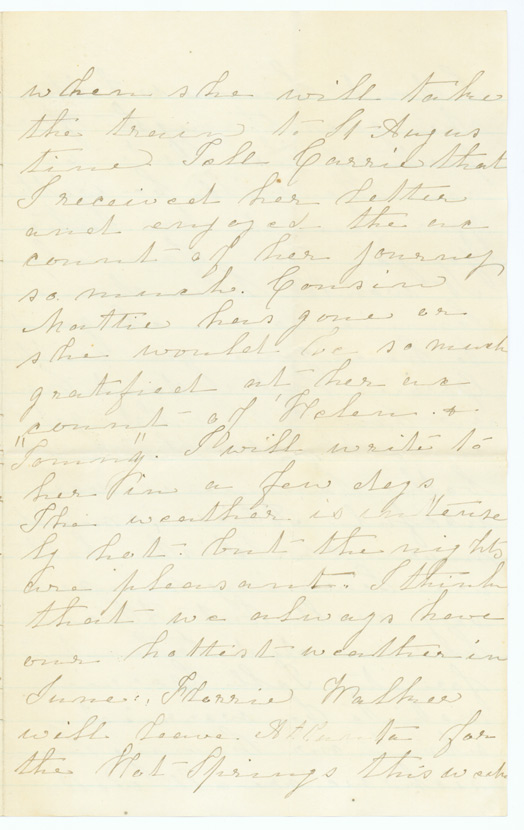 when she will take
the train to St Augus
tine. Tell Carrie that
I received her letter
and enjoyed the ac
count of her journey
so much. Cousin
Mattie has gone or
she would be so much
gratified at her ac
count of Helen &
"Tommy". I will write to
her in a few days
The weather is intense
ly hot. but the nights
are pleasant. I think
that we always have
our hottest weather in
June. Florrie Walker
will leave Atlanta for
the Hot Springs this week